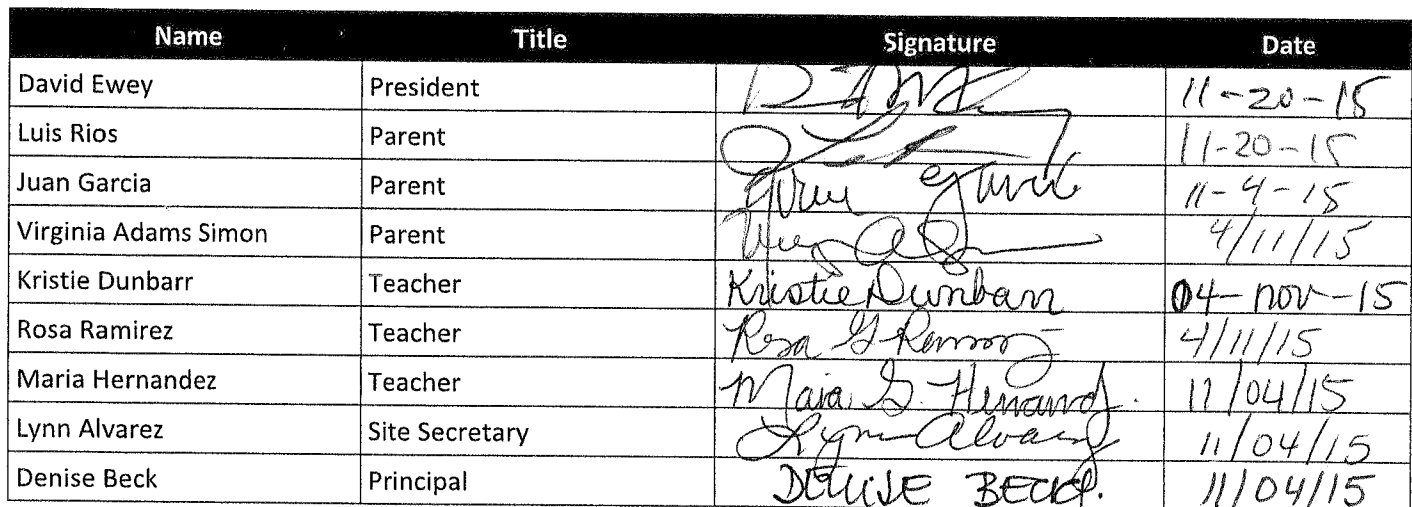 Name Title Signature Date
David Ewey President 11-20-15
Luis Rios Parent 11-20-15
Juan Garcia Parent 11-4-15
Virginia Adams Simon Parent 4/11/15
Kristie Dunbarr Teacher Kristie Dunbarr 04-nov-15
Rosa Ramirez Teacher Rosa G Ramirez 4/11/15
Maria Hernandez Teacher Maria G. Hernandez 11/04/15
Lynn Alvarez Site Secretary Lynn Alvarez 11/04/15
Denise Beck Principal DENISE BECK. 11/04/15